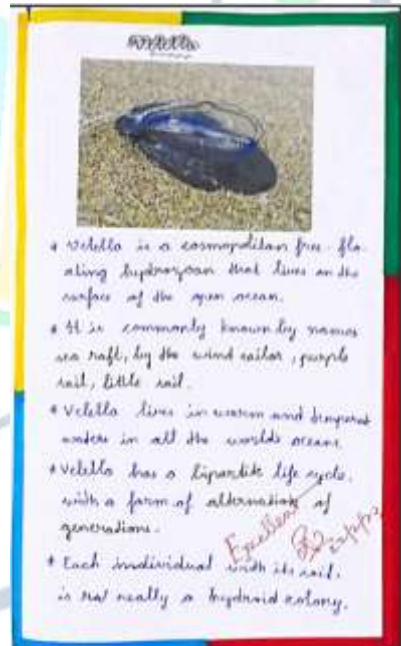 * Velella is a cosmopolitan free-flo-
ating hydrozoan that lives on the
surface of the open ocean.
* It is commonly known by names
sea raft, by the wind sailor, purple
sail, little sail.
* Velella lives in warm and temperat
waters in all the worlds oceans
* Velella has a bipartite life cycle,
with a form of alternation of
generations.
Excellent
* Each individual with its sail,
is really a hydroid colony.